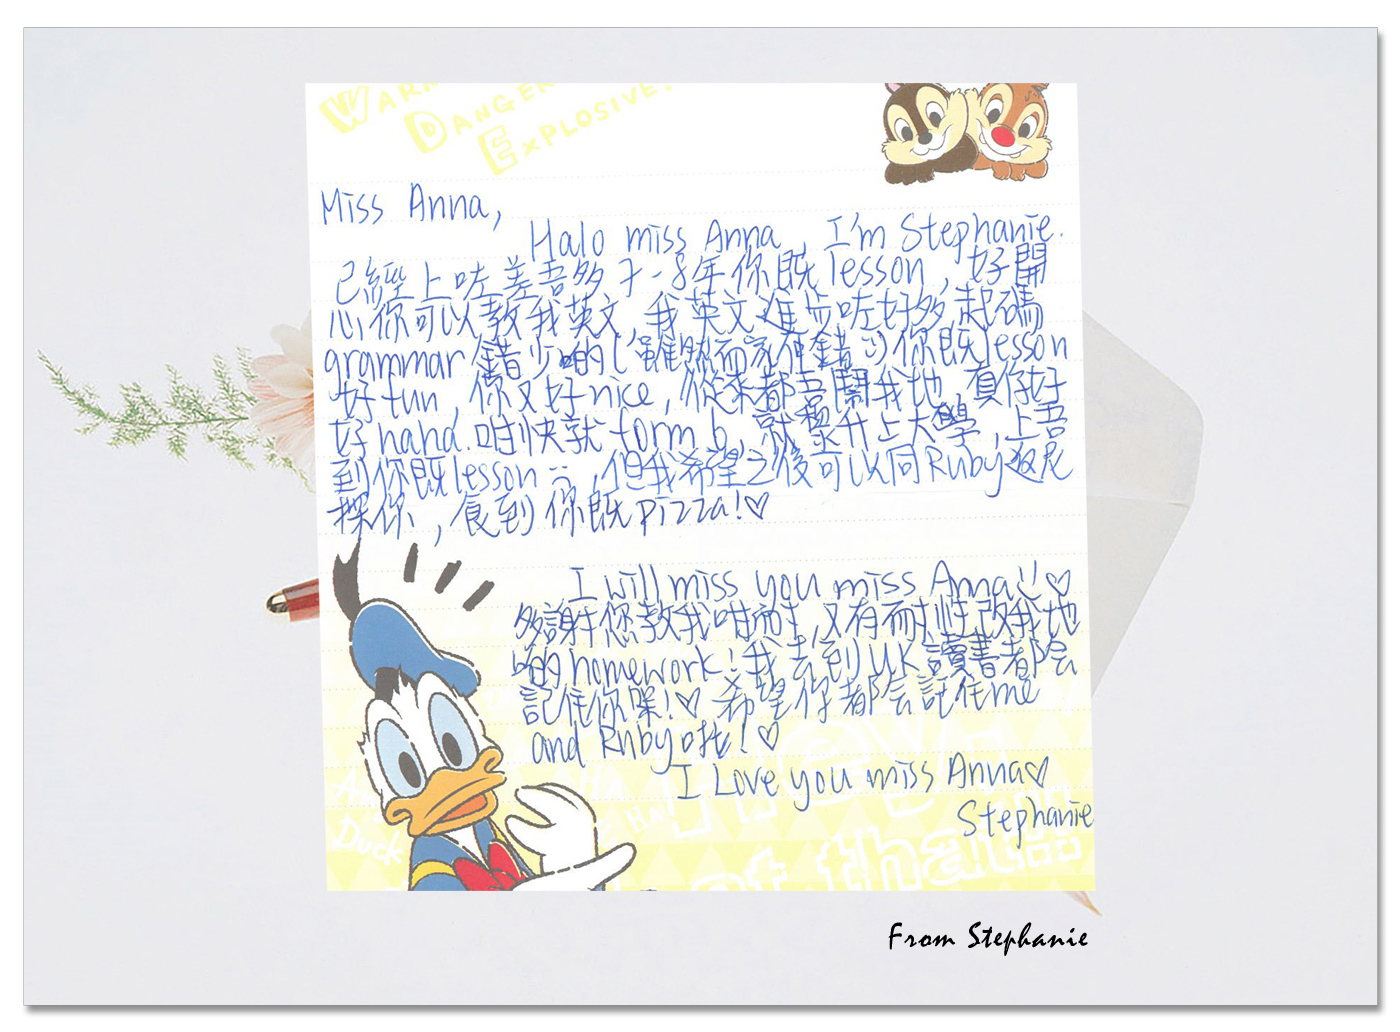 WARN
DANGER
EXPLOSIVE!
Miss Anna,
Halo miss Anna, I'm Stephanie.
已經上咗差吾多7-8年你既lesson, 好開
心你可以教我英文, 我英文進步咗好多, 起碼
grammar 錯少啲(雖然而家仲錯:)) 你既lesson
好fun, 你又好nice, 從來都吾鬧我地, 真係好
好hand. 咁快就form 6, 就黎升上大學, 上吾
到你既lesson :(, 但我希望之後可以同Ruby返黎
探你, 食到你既pizza!♡
I will miss you miss Anna!:)♡
多謝您教我咁耐, 又有耐性改我地
啲homework! 我去到UK讀書都会
記住你㗎!♡ 希望你都会記住me
and Ruby啦!♡
I Love you miss Anna♡
Stephanie
Duck
Ha
that
From Stephanie